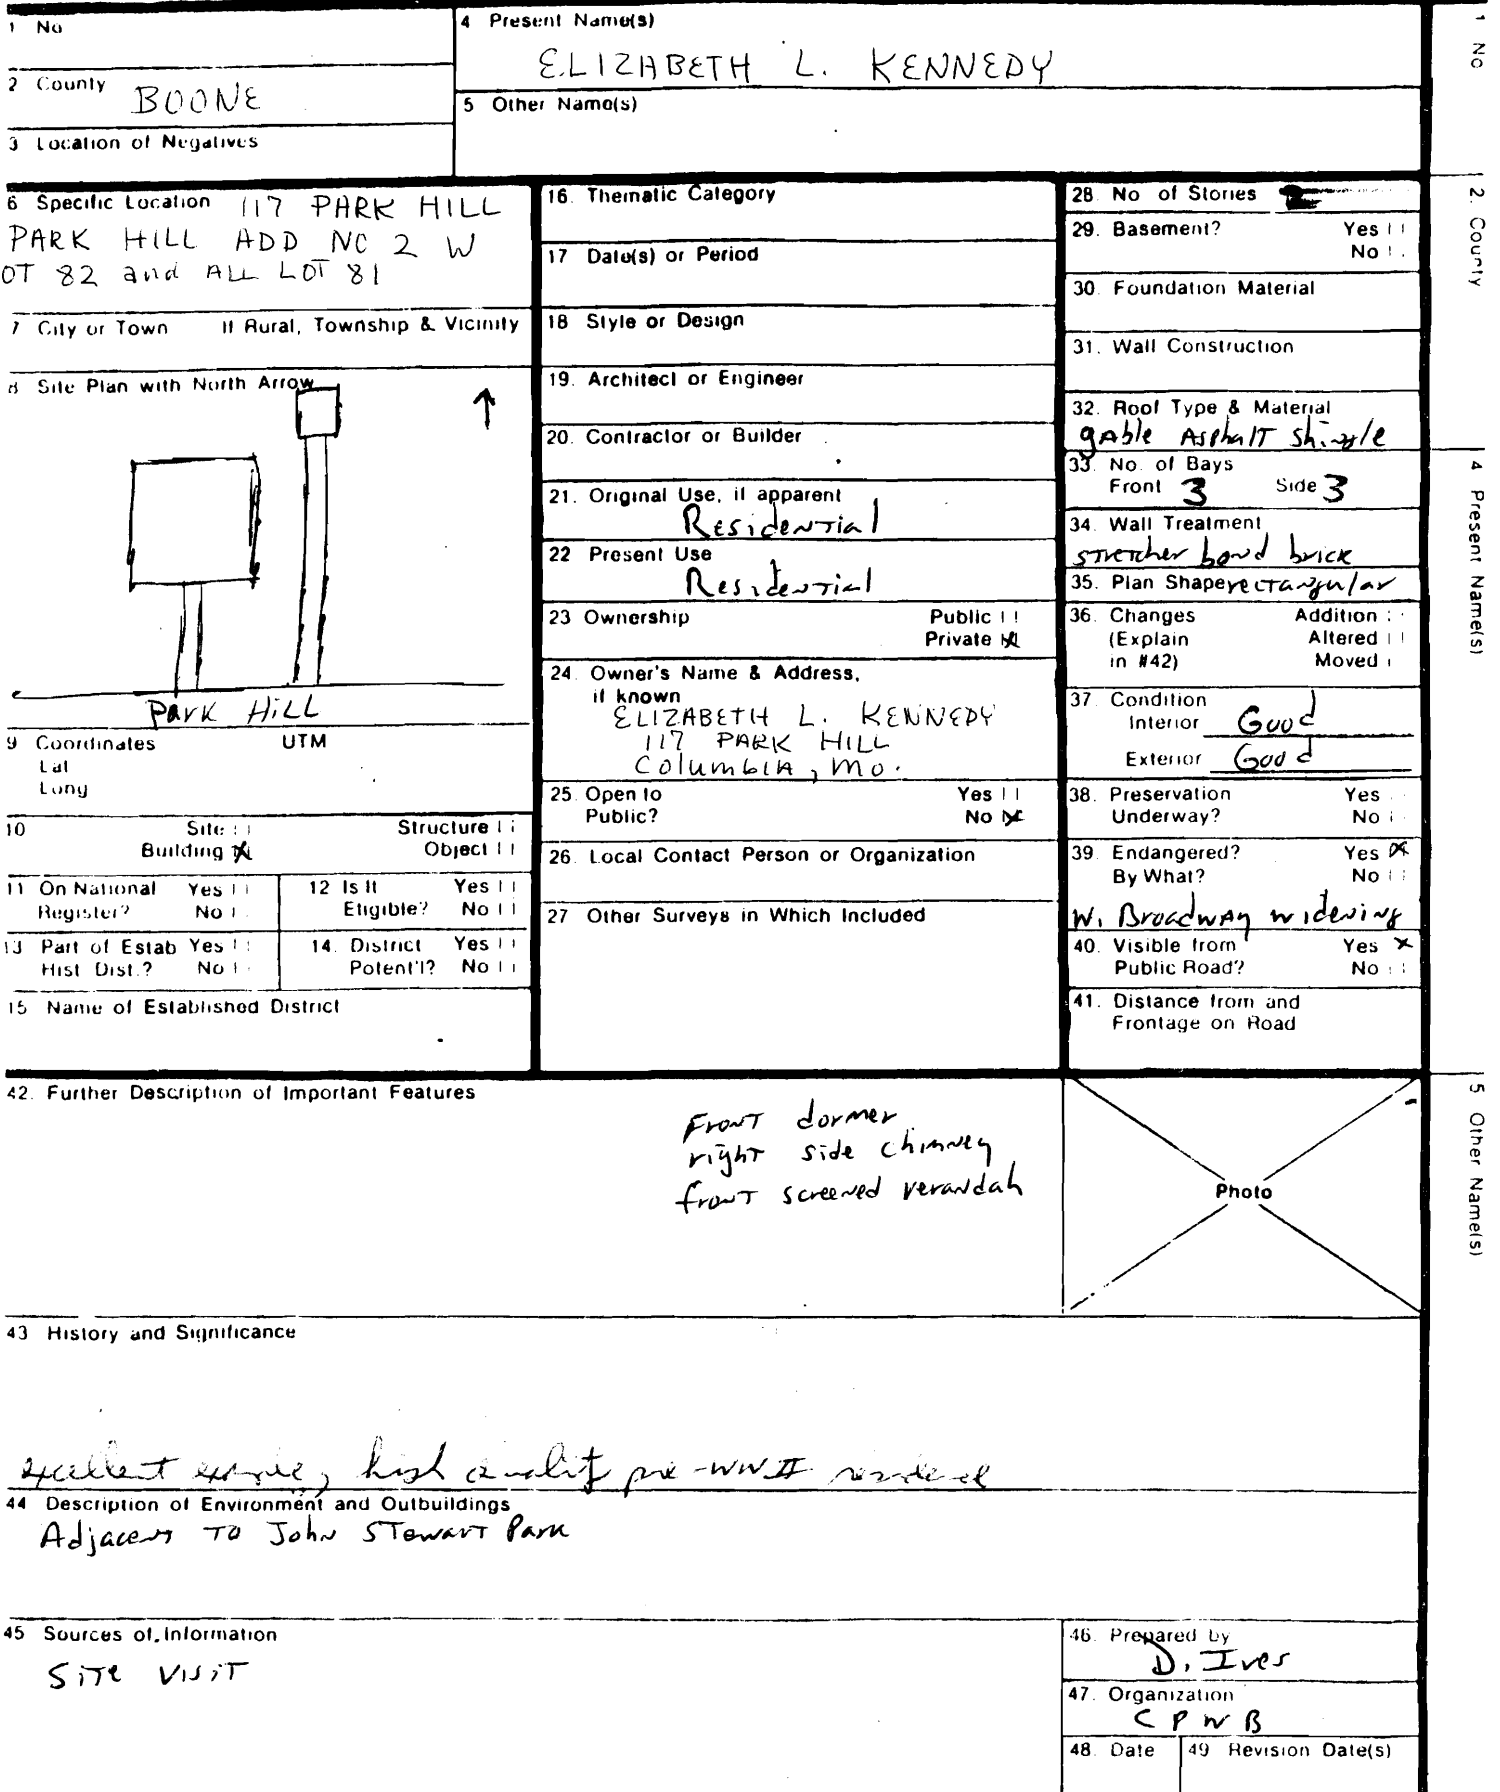 1 No
4 Present Name(s)
ELIZABETH L. KENNEDY
2 County
BOONE
5 Other Name(s)
3 Location of Negatives
6 Specific Location 117 PARK HILL
PARK HILL ADD NO 2 W
OT 82 and ALL LOT 81
7 City or Town If Rural, Township & Vicinity
8 Site Plan with North Arrow
PARK HILL
9 Coordinates UTM
Lat
Long
10 Site Structure
Building X Object
11 On National Register? Yes No
12 Is It Eligible? Yes No
13 Part of Estab Hist. Dist.? Yes No
14. District Potent'l? Yes No
15 Name of Established District
16. Thematic Category
17 Date(s) or Period
18 Style or Design
19. Architect or Engineer
20. Contractor or Builder
21. Original Use, if apparent
Residential
22 Present Use
Residential
23 Ownership Public
Private X
24. Owner's Name & Address,
if known
ELIZABETH L. KENNEDY
117 PARK HILL
Columbia, Mo.
25. Open to Yes
Public? No X
26. Local Contact Person or Organization
27 Other Surveys in Which Included
28. No of Stories
29. Basement? Yes
No
30. Foundation Material
31. Wall Construction
32. Roof Type & Material
gable Asphalt shingle
33. No. of Bays
Front 3 Side 3
34. Wall Treatment
stretcher bond brick
35. Plan Shape rectangular
36. Changes Addition
(Explain Altered
in #42) Moved
37. Condition
Interior Good
Exterior Good
38. Preservation Yes
Underway? No
39. Endangered? Yes X
By What? No
W. Broadway widening
40. Visible from Yes X
Public Road? No
41. Distance from and
Frontage on Road
42. Further Description of Important Features
Front dormer
right side chimney
front screened verandah
Photo
43 History and Significance
excellent example, high quality pre-WWII residence
44 Description of Environment and Outbuildings
Adjacent To John Stewart Park
45 Sources of Information
Site Visit
46. Prepared by
D. Ives
47. Organization
CPWB
48. Date
49 Revision Date(s)
1 No
2. County
4 Present Name(s)
5 Other Name(s)